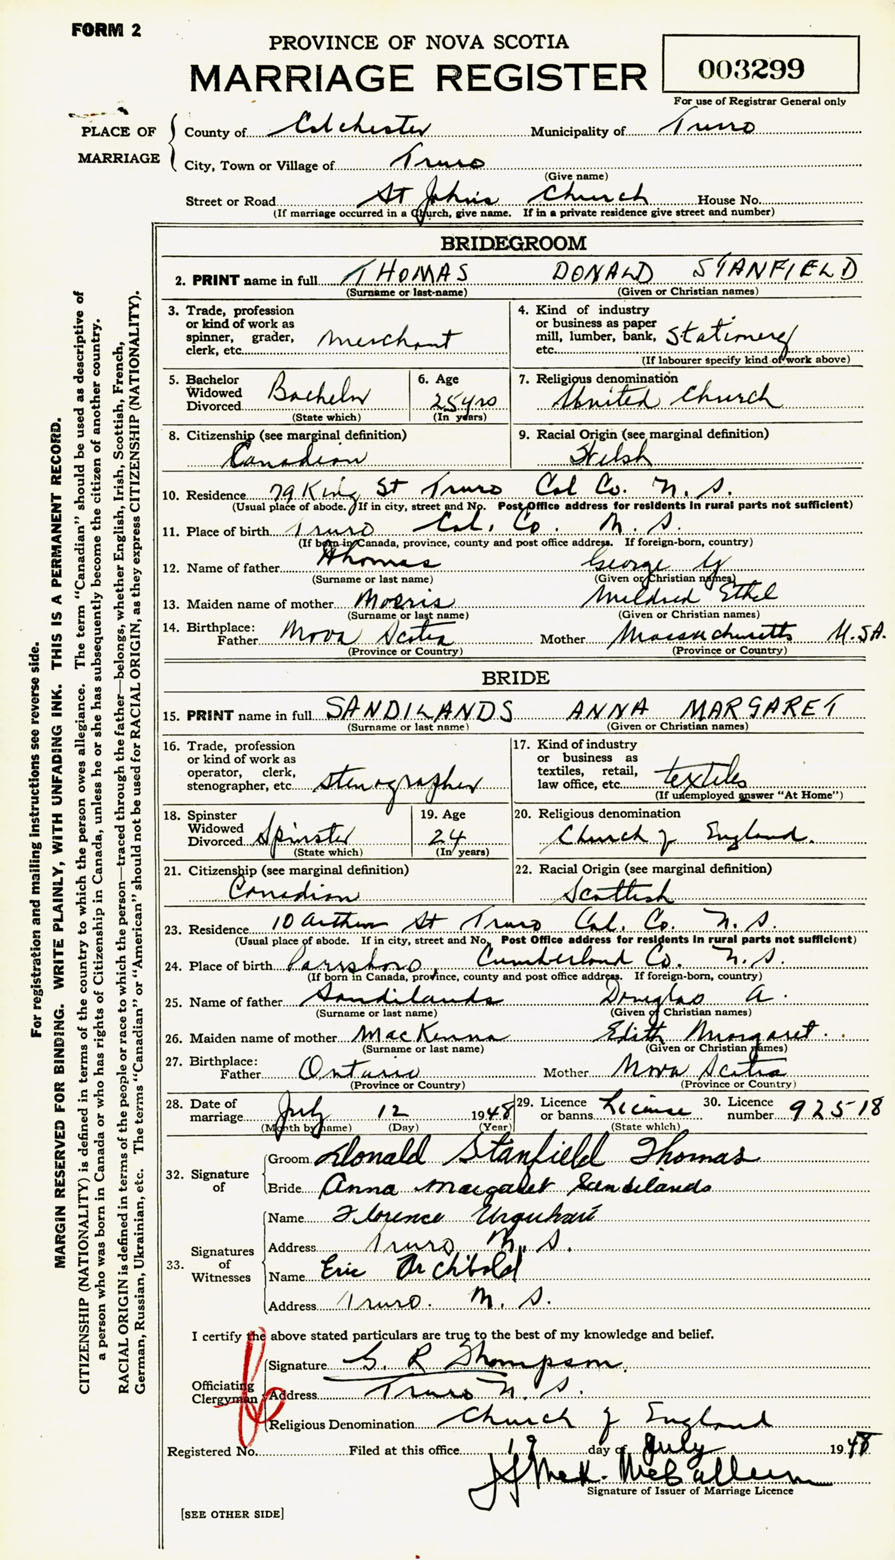 FORM 2
PROVINCE OF NOVA SCOTIA
MARRIAGE REGISTER
003299
For use of Registrar General only
PLACE OF MARRIAGE
County of Colchester Municipality of Truro
City, Town or Village of Truro
(Give name)
Street or Road St Johns Church House No.
(If marriage occurred in a Church, give name. If in a private residence give street and number)
BRIDEGROOM
2. PRINT name in full THOMAS DONALD STANFIELD
(Surname or last-name) (Given or Christian names)
3. Trade, profession or kind of work as spinner, grader, clerk, etc. Merchant
4. Kind of industry or business as paper mill, lumber, bank, etc. Stationery
(If labourer specify kind of work above)
5. Bachelor Widowed Divorced Bachelor
(State which)
6. Age 25 yrs
(In years)
7. Religious denomination United Church
8. Citizenship (see marginal definition) Canadian
9. Racial Origin (see marginal definition) Welsh
10. Residence 79 King St Truro Col Co. N. S.
(Usual place of abode. If in city, street and No. Post Office address for residents in rural parts not sufficient)
11. Place of birth Truro Col. Co. N. S.
(If born in Canada, province, county and post office address. If foreign-born, country)
12. Name of father Thomas George
(Surname or last name) (Given or Christian names)
13. Maiden name of mother Morris Mildred Ethel
(Surname or last name) (Given or Christian names)
14. Birthplace: Father Nova Scotia Mother Massachusetts U.S.A.
(Province or Country) (Province or Country)
BRIDE
15. PRINT name in full SANDILANDS ANNA MARGARET
(Surname or last name) (Given or Christian names)
16. Trade, profession or kind of work as operator, clerk, stenographer, etc. Stenographer
17. Kind of industry or business as textiles, retail, law office, etc. textiles
(If unemployed answer "At Home")
18. Spinster Widowed Divorced Spinster
(State which)
19. Age 24
(In years)
20. Religious denomination Church of England.
21. Citizenship (see marginal definition) Canadian
22. Racial Origin (see marginal definition) Scottish
23. Residence 10 Arthur St Truro Col. Co. N. S.
(Usual place of abode. If in city, street and No. Post Office address for residents in rural parts not sufficient)
24. Place of birth Parrsboro, Cumberland Co. N. S.
(If born in Canada, province, county and post office address. If foreign-born, country)
25. Name of father Sandilands Douglas A.
(Surname or last name) (Given or Christian names)
26. Maiden name of mother MacKenna Edith Margaret.
(Surname or last name) (Given or Christian names)
27. Birthplace: Father Ontario Mother Nova Scotia
(Province or Country) (Province or Country)
28. Date of marriage July 12 1948
(Month by name) (Day) (Year)
29. Licence or banns License
(State which)
30. Licence number 92518
32. Signature of
Groom Donald Stanfield Thomas
Bride Anna Margaret Sandilands
33. Signatures of Witnesses
Name Florence Urquhart
Address Truro N. S.
Name Eric Archibald
Address Truro. N. S.
I certify the above stated particulars are true to the best of my knowledge and belief.
Officiating Clergyman
Signature G. R Thompson.
Address Truro N. S.
Religious Denomination Church of England
Registered No. Filed at this office 19 day of July 1948
McCallum
Signature of Issuer of Marriage Licence
[SEE OTHER SIDE]
For registration and mailing instructions see reverse side.
MARGIN RESERVED FOR BINDING. WRITE PLAINLY, WITH UNFADING INK. THIS IS A PERMANENT RECORD.
CITIZENSHIP (NATIONALITY) is defined in terms of the country to which the person owes allegiance. The term "Canadian" should be used as descriptive of
a person who was born in Canada or who has rights of Citizenship in Canada, unless he or she has subsequently become the citizen of another country.
RACIAL ORIGIN is defined in terms of the people or race to which the person—traced through the father—belongs, whether English, Irish, Scottish, French,
German, Russian, Ukrainian, etc. The terms "Canadian" or "American" should not be used for RACIAL ORIGIN, as they express CITIZENSHIP (NATIONALITY).